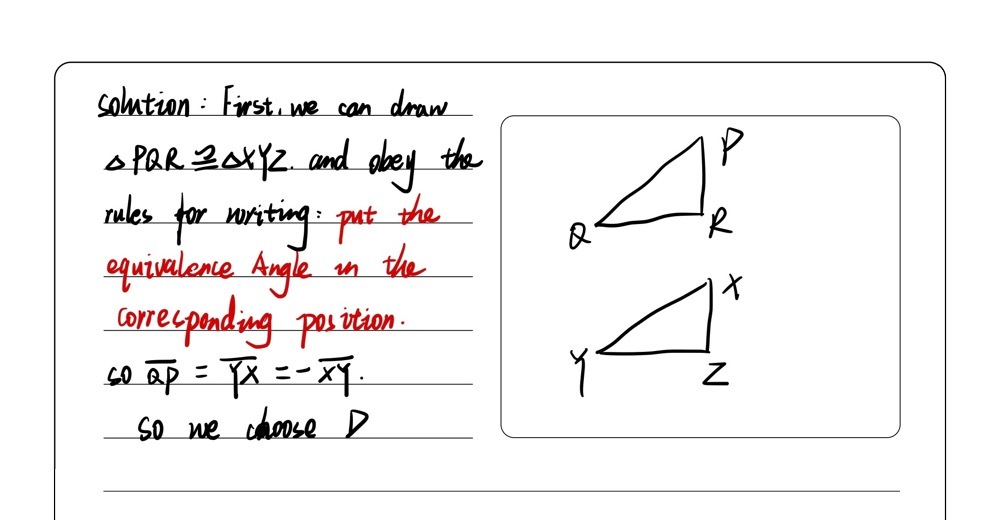 solution: First, we can draw
△PQR ≅ △XYZ. and obey the
rules for writing: put the
equivalence Angle in the
corresponding position.
so \overline{QP} = \overline{YX} = - \overline{XY}.
so we choose D
P
Q
R
X
Y
Z